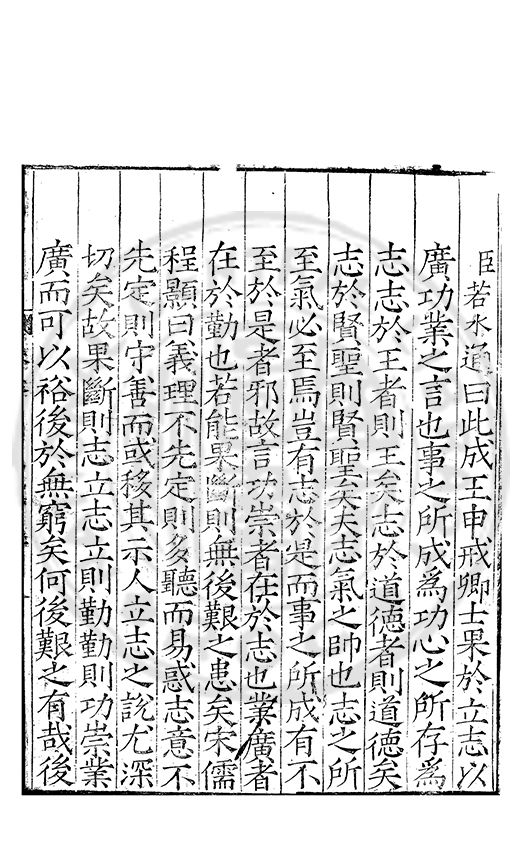 臣若水通曰此成王申戒卿士果於立志以
廣功業之言也事之所成為功心之所存為
志志於王者則王矣志於道德者則道德矣
志於賢聖則賢聖矣夫志氣之帥也志之所
至氣必至焉豈有志於是而事之所成有不
至於是者邪故言功崇者在於志也業廣者
在於勤也若能果斷則無後艱之患矣宋儒
程顥曰義理不先定則多聽而易惑志意不
先定則守善而或移其示人立志之說尤深
切矣故果斷則志立志立則勤勤則功崇業
廣而可以裕後於無窮矣何後艱之有哉後